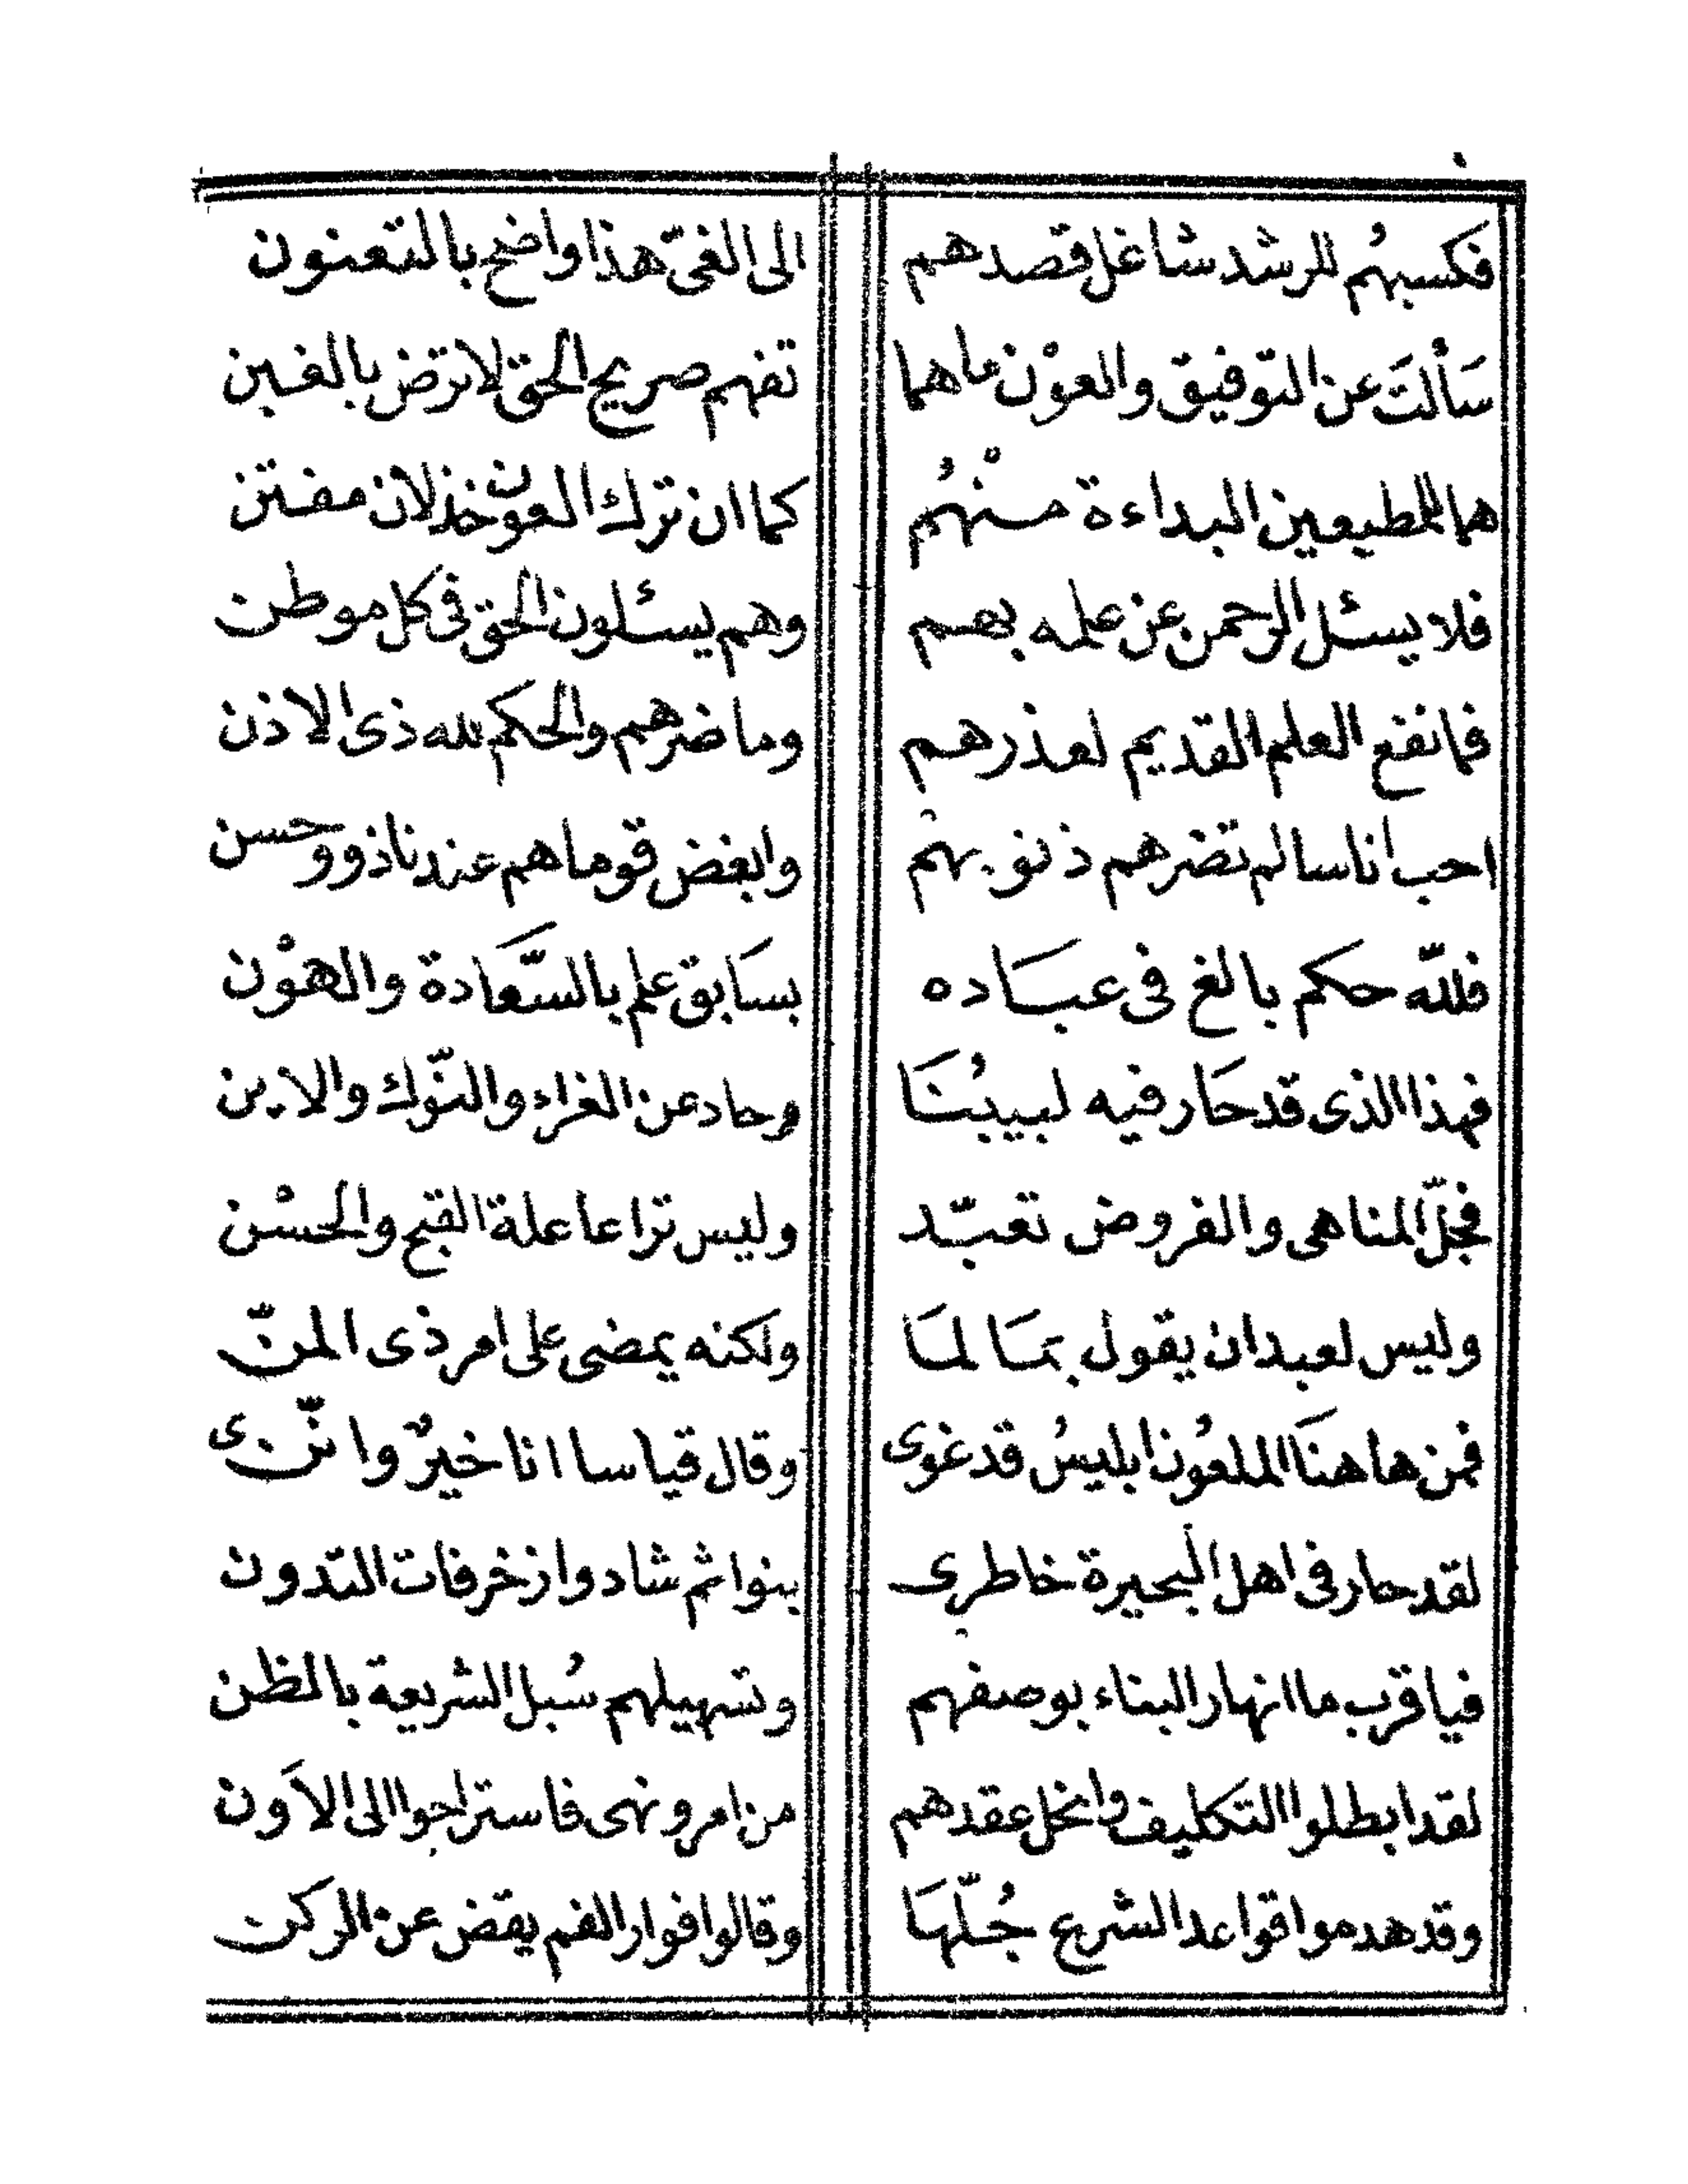 فكسبهُم للرشد شاغل قصدهم الى الغىّ هذا واضح بالتعنون
سَألتَ عن التوفيق والعوْن ما هما تفهم صريح الحق لا ترض بالغبن
هما للمطيعين البداءة منهُم كما ان ترك العون خذلان مفتن
فلا يسئل الرحمن عن علمه بهم وهم يسئلون الحق فى كل موطن
فما نفع العلم القديم لعذرهم وما ضرهم والحكم لله ذى الاذن
احب اناسا لم تضرهم ذنوبهم وابغض قوما هم عندنا ذوو حسن
فللّه حكم بالغ فى عبَاده بسَابق علم بالسَّعادة والهوْن
فهذا الذى قد حَار فيه لبيبُنَا وحاد عن الغراء والنّوك والاين
فجلّ المناهى والفروض تعبّد وليس تراعا علة القبح والحسْن
وليس لعبد ان يقول بمَا لمَا ولكنه يمضى على امر ذى المنّ
فمن هاهنَا الملعُون ابليسُ قد غوى وقال قياسا انا خيرٌ وانّنى
لقد حار فى اهل البحيرة خاطرى بنوا ثم شادوا زخرفات التدون
فيا قرب ما انهار البناء بوصفهم وتسهيلهم سُبل الشريعة بالظن
لقد ابطلوا التكليف وانحل عقدهم من امر ونهى فاستراحوا الى الاَون
وقد هدموا قواعد الشرع جُلّهَا وقالوا فوار الفم يقض عن الركن